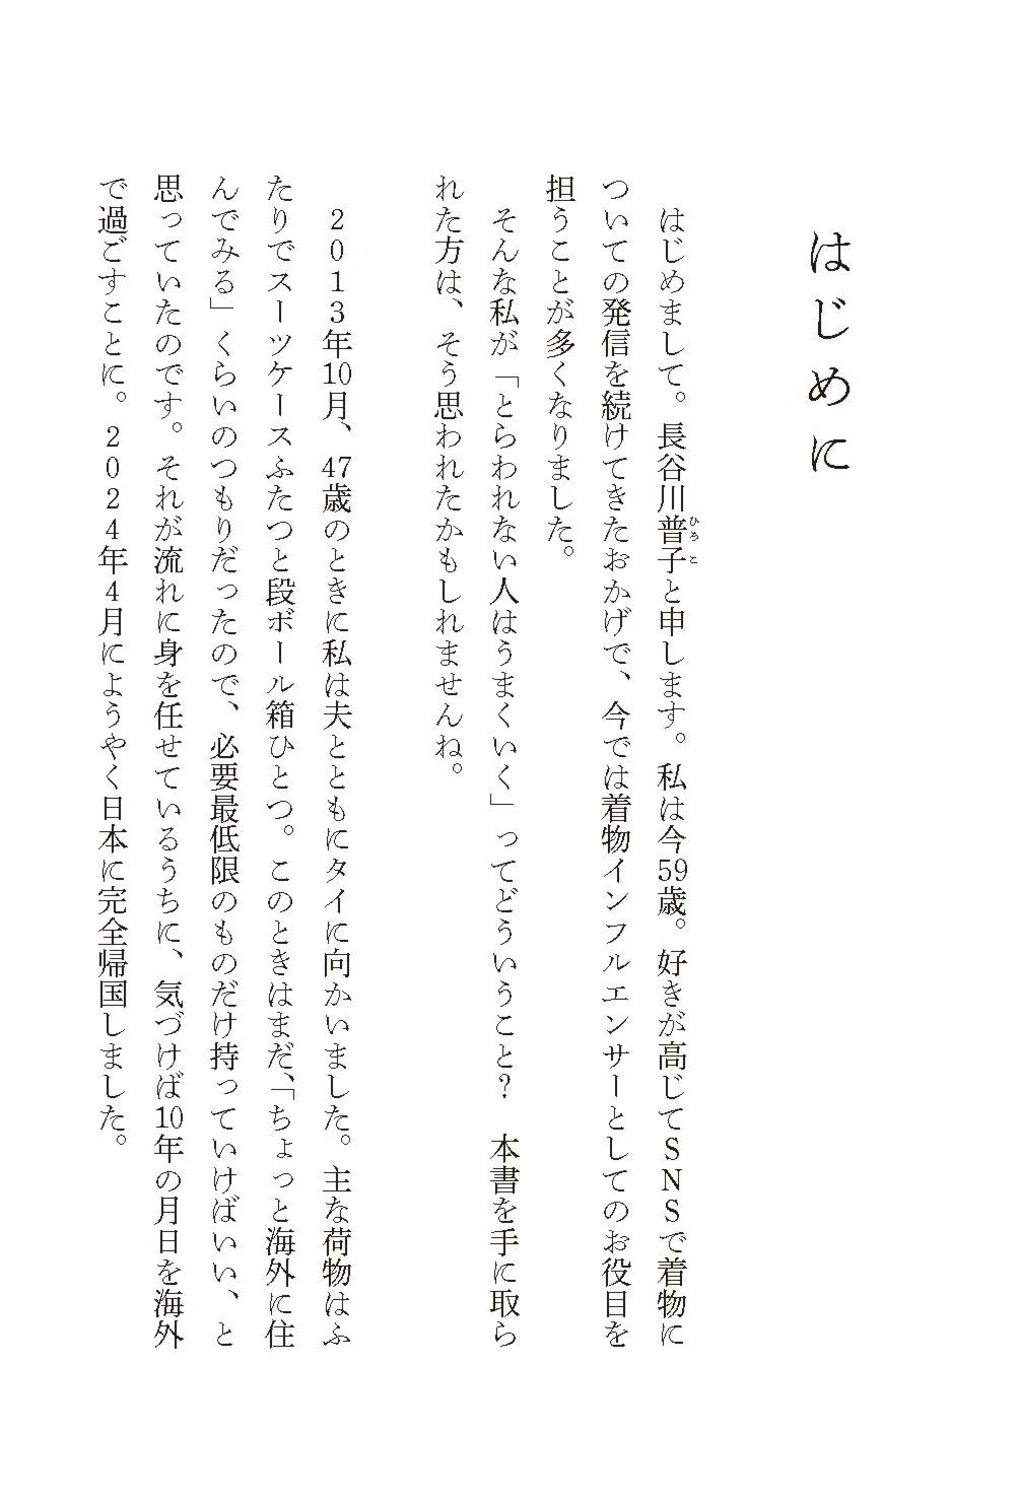 はじめに
はじめまして。長谷川普子と申します。私は今59歳。好きが高じてSNSで着物に
ひろこ
ついての発信を続けてきたおかげで、今では着物インフルエンサーとしてのお役目を
担うことが多くなりました。
そんな私が「とらわれない人はうまくいく」ってどういうこと？　本書を手に取ら
れた方は、そう思われたかもしれませんね。
2013年10月、47歳のときに私は夫とともにタイに向かいました。主な荷物はふ
たりでスーツケースふたつと段ボール箱ひとつ。このときはまだ、「ちょっと海外に住
んでみる」くらいのつもりだったので、必要最低限のものだけ持っていけばいい、と
思っていたのです。それが流れに身を任せているうちに、気づけば10年の月日を海外
で過ごすことに。2024年4月にようやく日本に完全帰国しました。